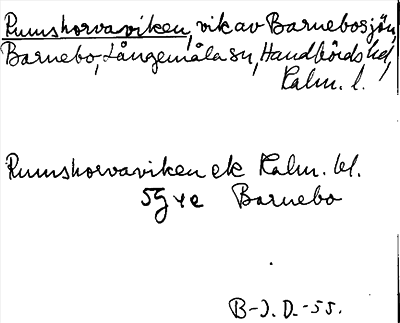 Rumshorvaviken, vik av Barnebosjön,
Barnebo, Långemåla sn, Handbörds hd,
Kalm. l.
Rumshorvaviken ek Kalm. bl.
5G ye Barnebo
B-J. D.-55.